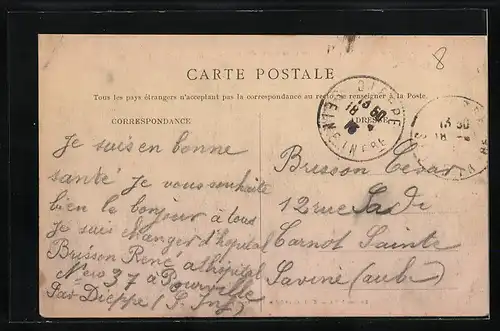 8
CARTE POSTALE
Tous les pays étrangers n'acceptant pas la correspondance au recto, se renseigner à la Poste.
CORRESPONDANCE
ADRESSE
DIEPPE
Je suis en bonne
santé Je vous souhaite
bien le bonjour à tous
Je suis changer d'hopital
Brisson René a l'hôpital
No 37 à Pourville
Par Dieppe (S. Inf)
Brisson César
12 rue Sadi
Carnot Sainte
Savine (aube)